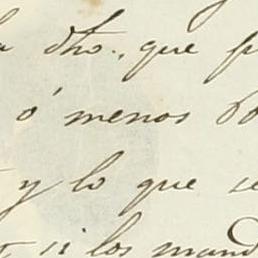 dho., que
ó menos
y lo que se
si los mand